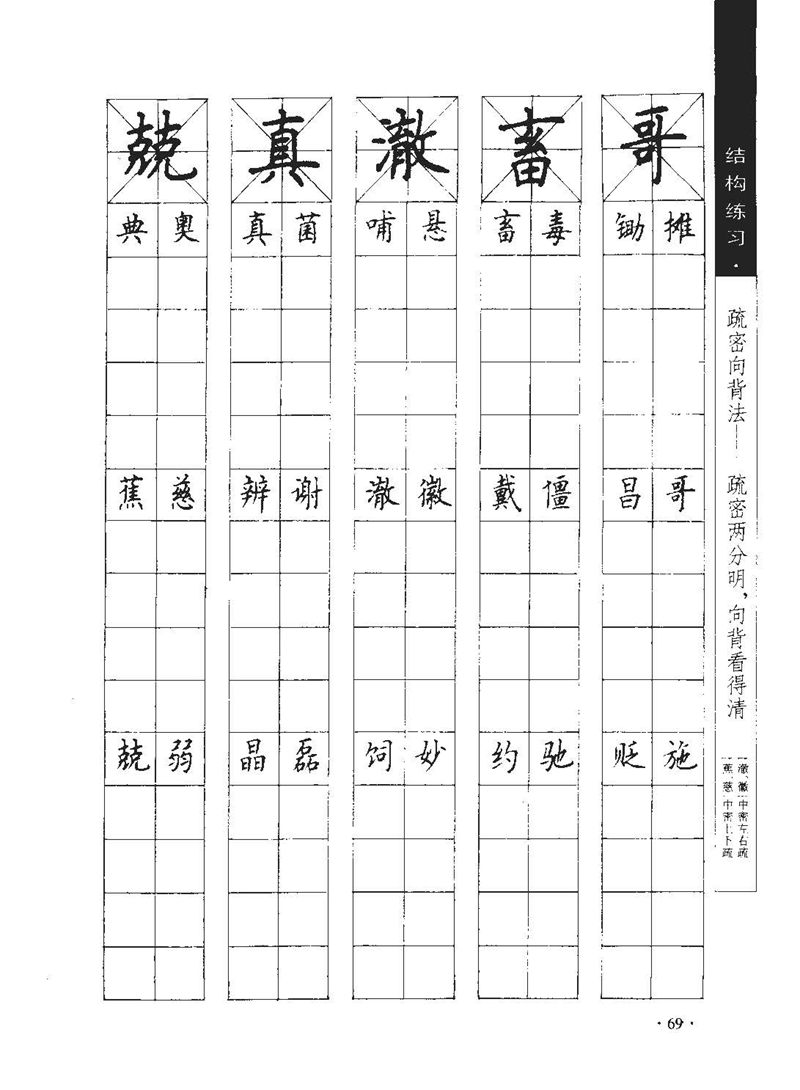 结构练习·
疏密向背法——疏密两分明，向背看得清
澈、徽中密左右疏
蕉、慈中密上下疏
兢 真 澈 畜 哥
典 奥 真 菌 哺 悬 畜 毒 锄 摊
蕉 慈 辨 谢 澈 徽 戴 僵 昌 哥
兢 弱 晶 磊 饲 妙 约 驰 贬 施
·69·